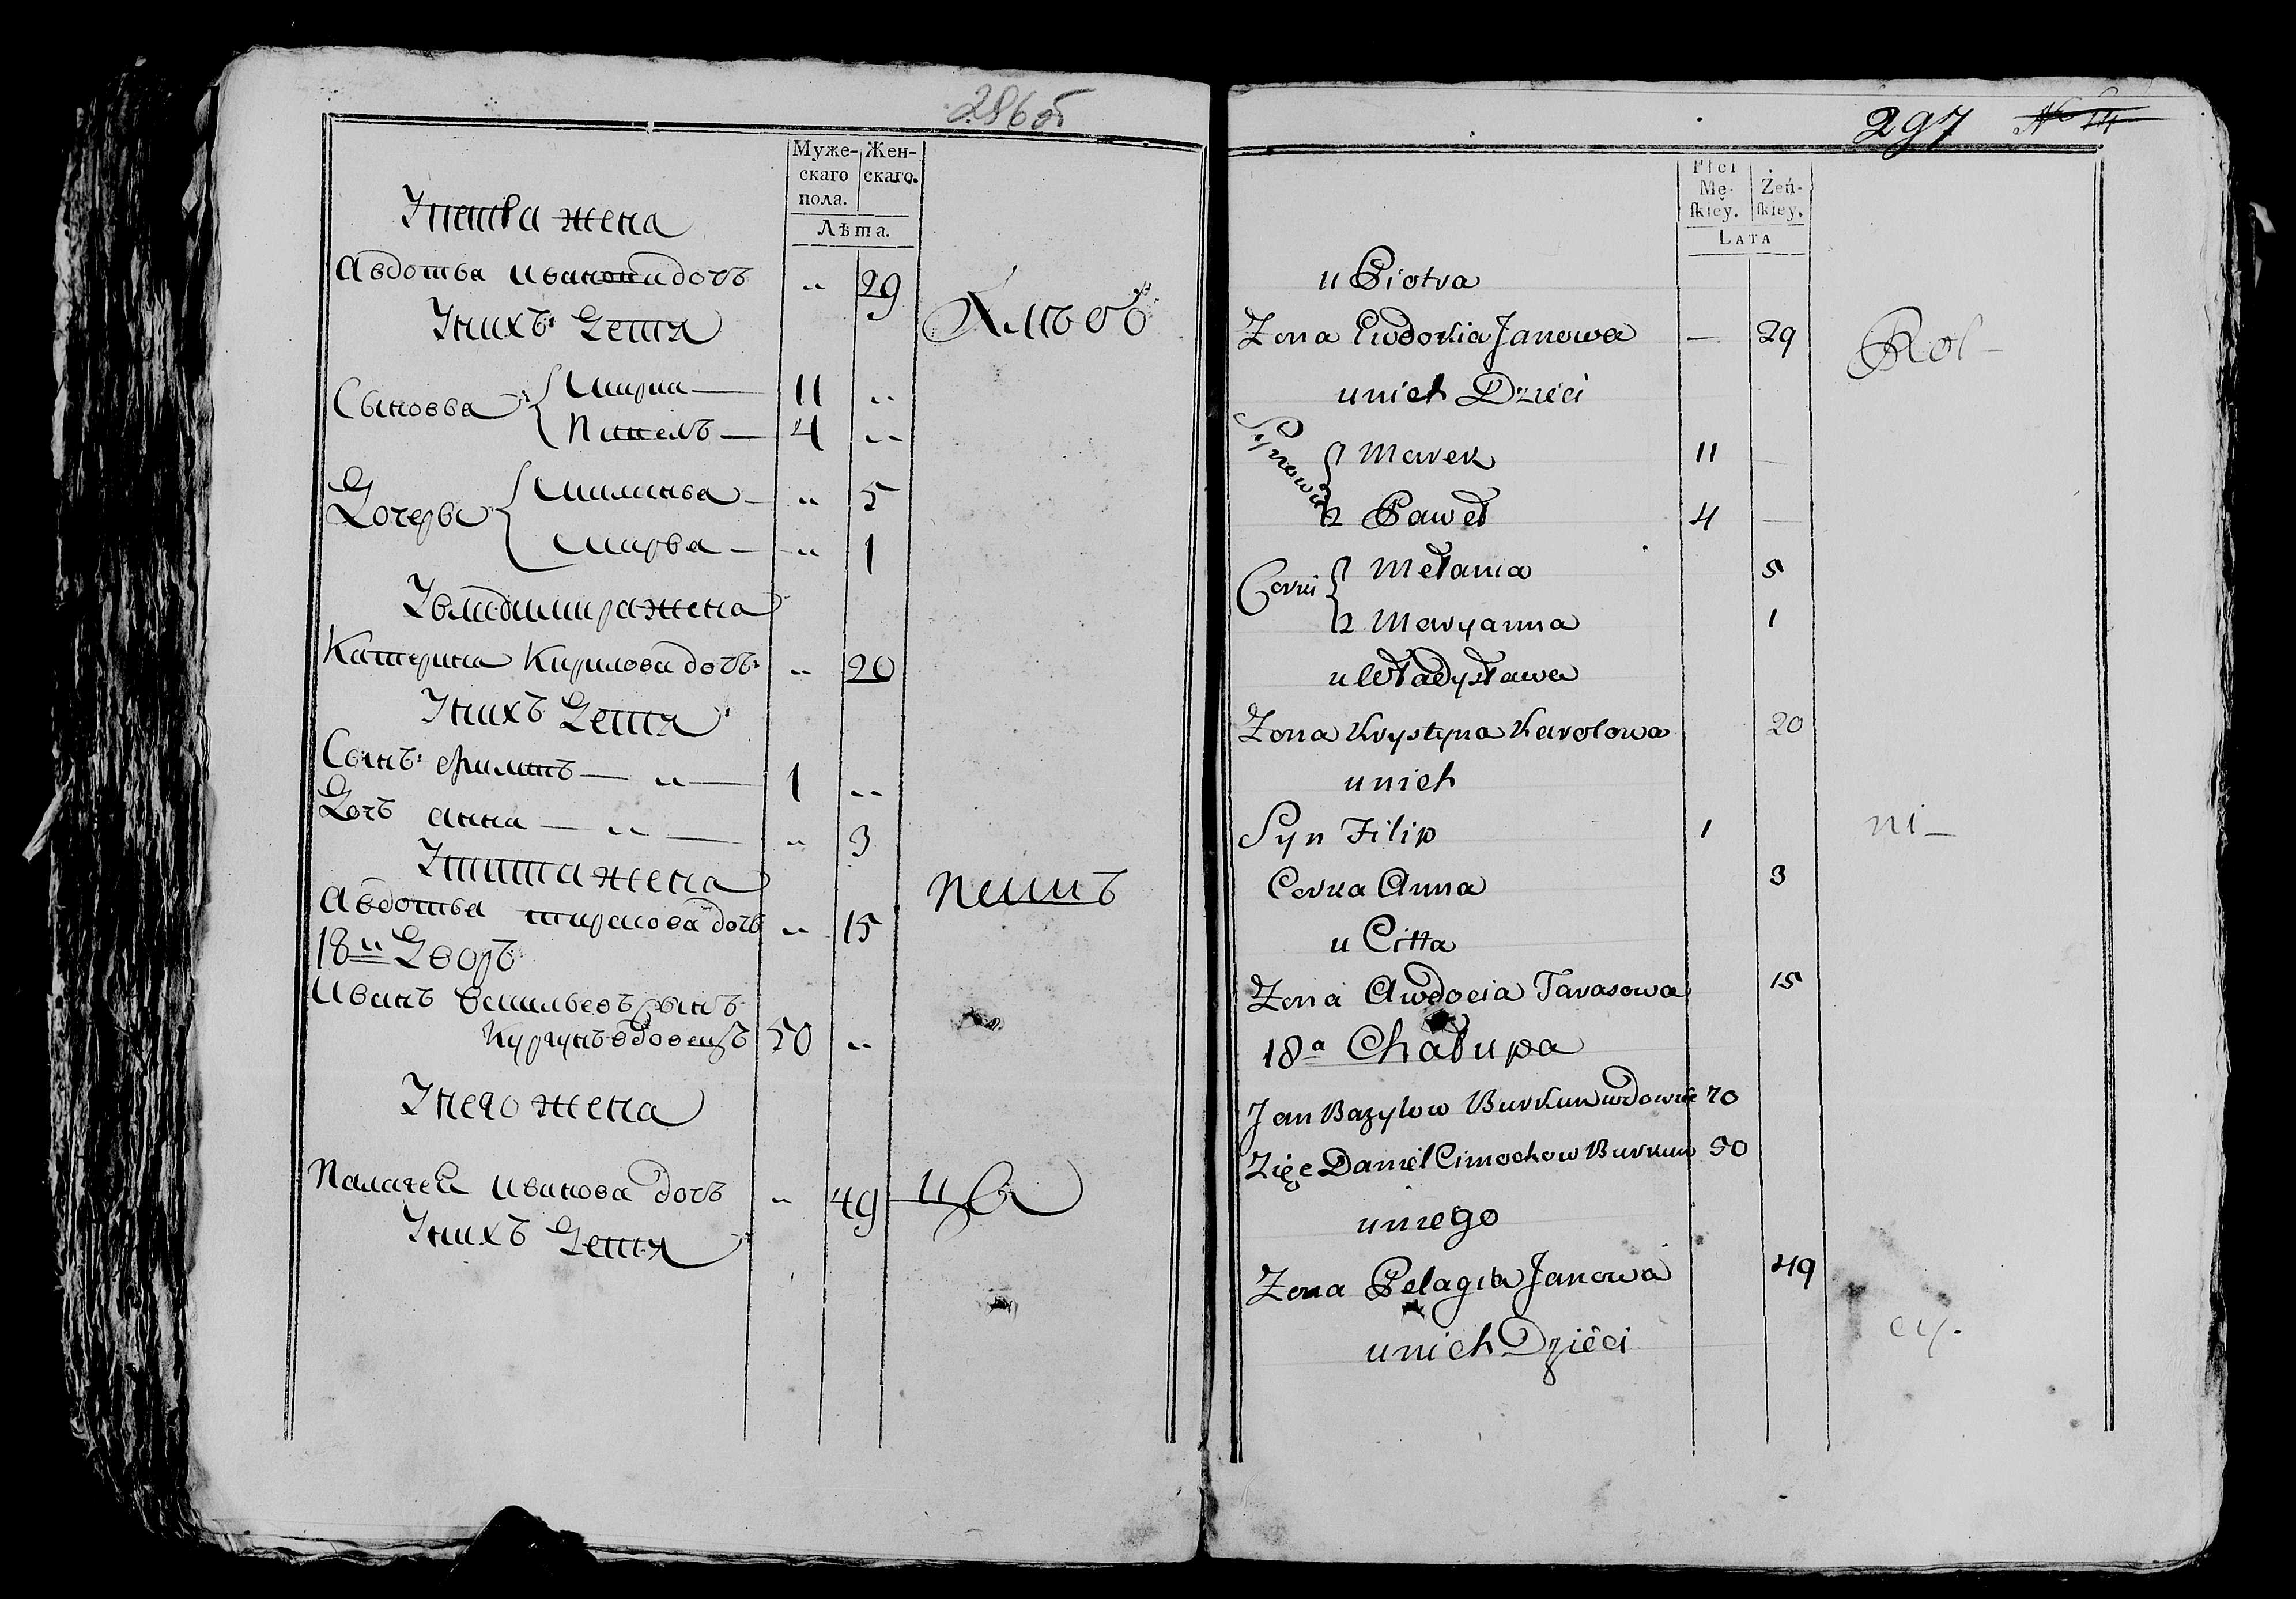 286 об
Муже- Жен-
скаго скаго.
пола.
Лѣта.
жена
Авдотья Иванова дочь .. 29
Унихъ Детя
Хлебо
Сыновья { Марка — 11 ..
Павелъ — 4 ..
Дочерьи { Маланья — .. 5
Марья — .. 1
Увладимира жена
Катерина Кирилова дочь .. 20
Унихъ Детя
Сынъ Филипъ — .. — 1 ..
Дочь анна — .. — .. 3
Утита жена
Авдотья тарасова дочь .. 15
пашъ
18й Дворъ
Иванъ Васильевъ Сынъ
вдовецъ 50 ..
Унего жена
Палагея Иванова дочь .. 49
ца
Унихъ Детя
297 No
Płci
Mę- Żeń-
ſkiey. ſkiey.
LATA
u Piotra
Zona Ewdokia Janowa — 29
Rol—
unich Dzieci
Synowie { Marek 11 —
Paweł 4 —
Corki { Mełania 5
Maryanna 1
u Władysława
Zona Krystyna Karolowa 20
unich
Syn Filip 1
ni—
Corka Anna 3
u Citta
Zona Awdocia Tarasowa 15
18a Chałupa
Jan Bazylow Burkun wdowiec 70
Zięc Daniel Cimochow Burkun 50
uniego
Zona Pelagia Janowa 49
cy.
unich Dzieci